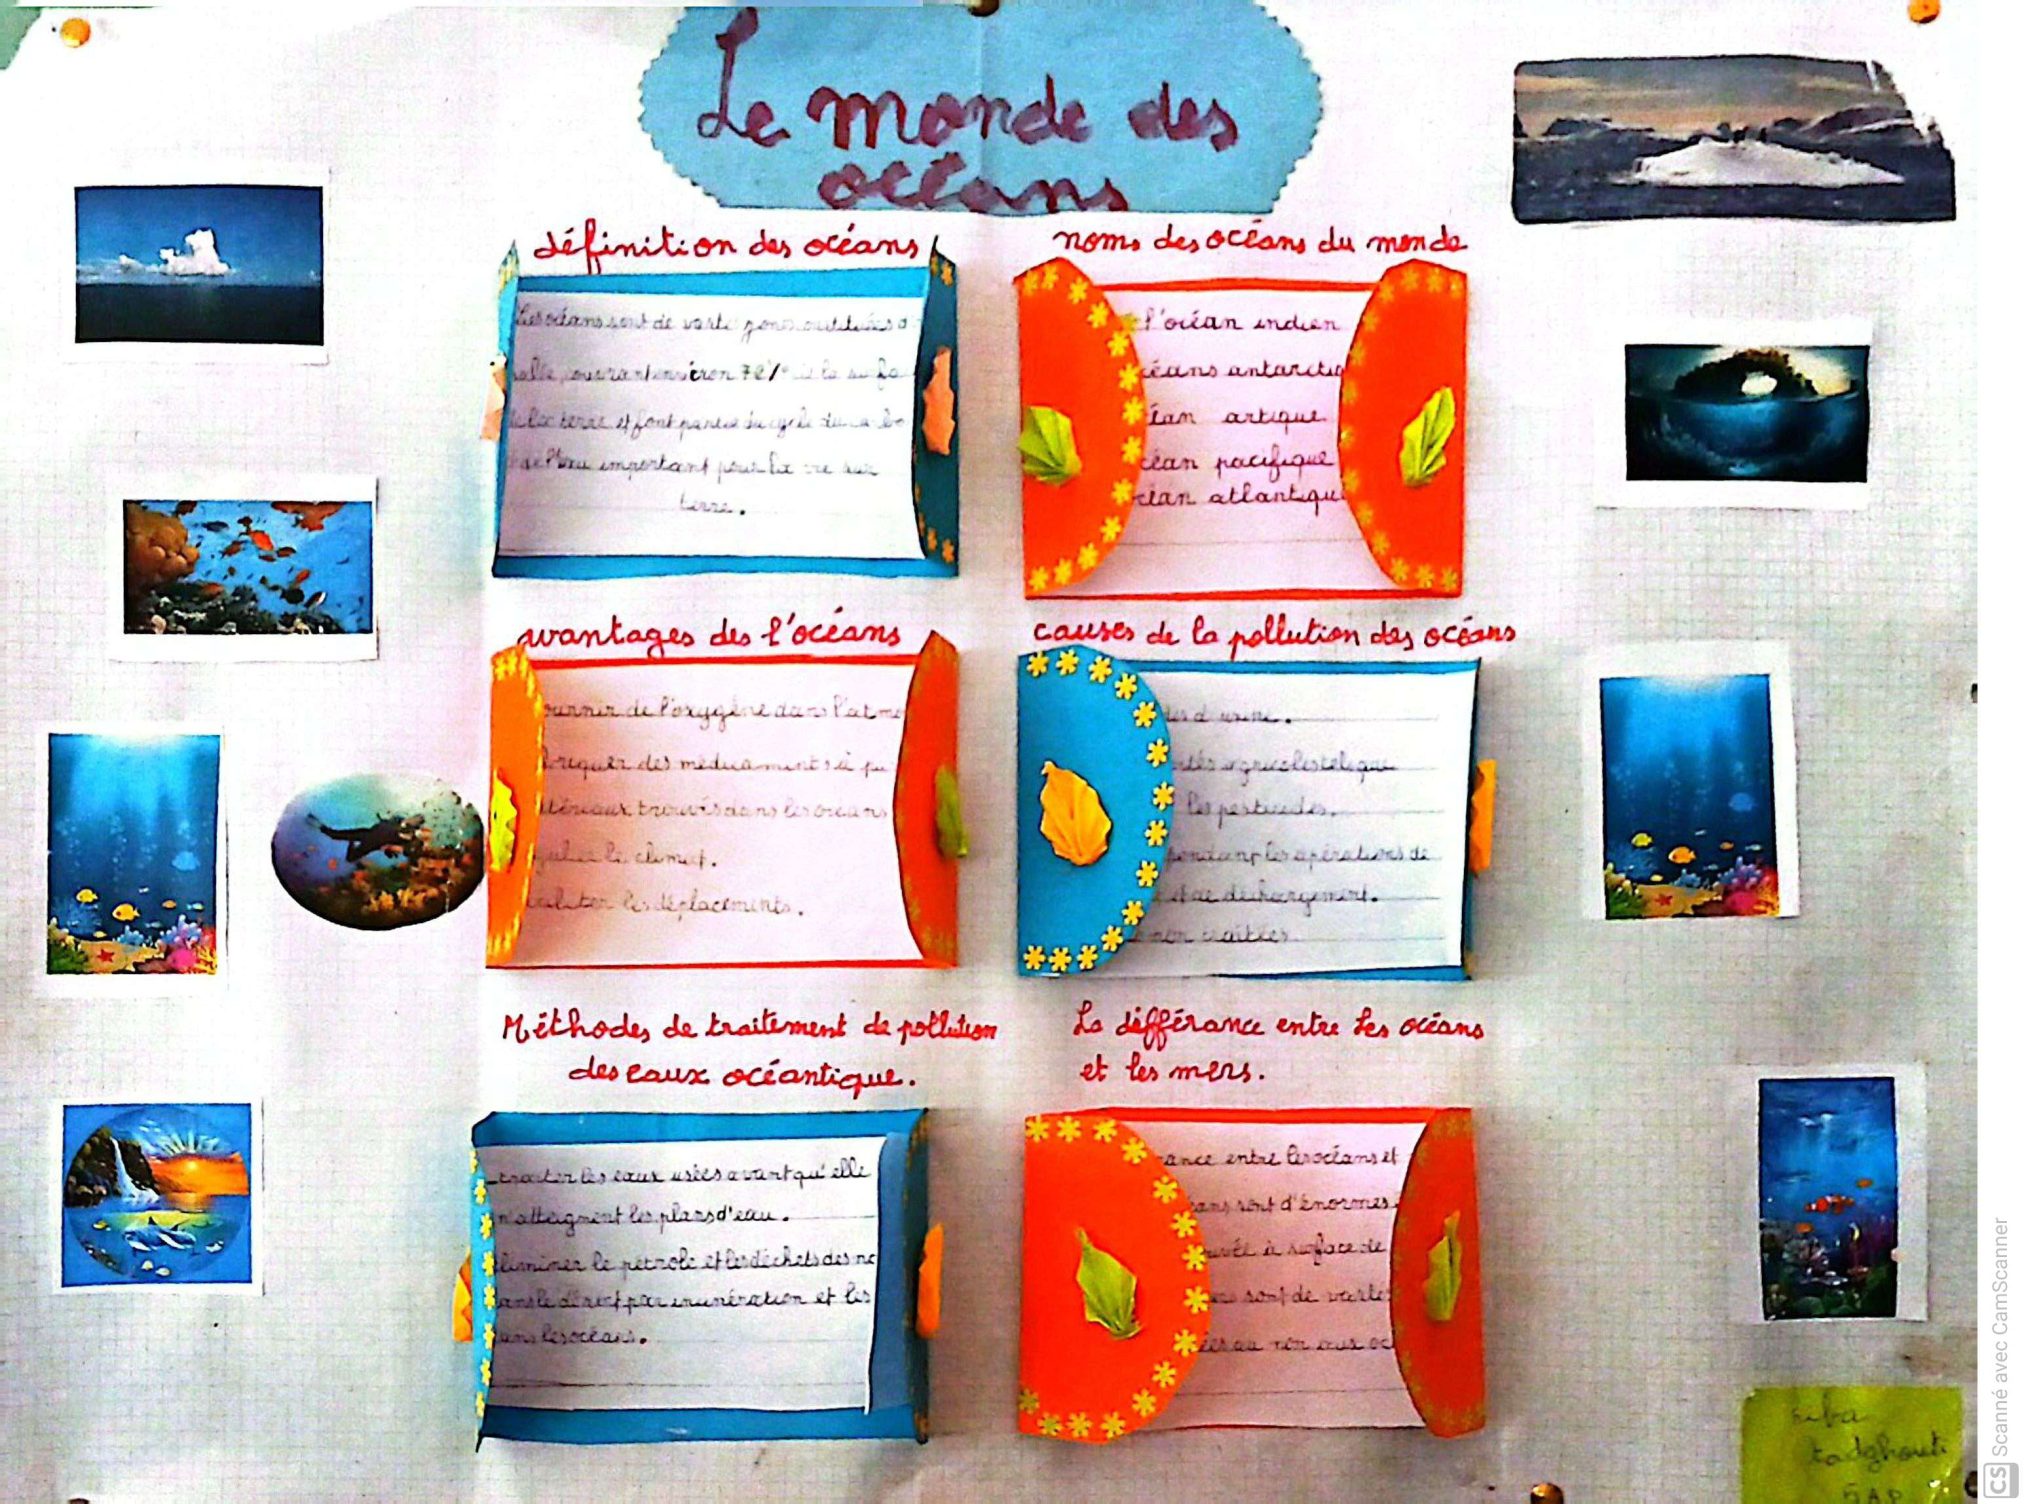 Le monde des
océans
définition des océans
Les océans sont de vastes zones
72% de la surfa
la terre et font partie du cycle du carbo
de l'eau important pour la vie sur
terre.
noms des océans du monde
l'océan indien
céans antarctiq
éan artique
céan pacifique
céan atlantique
avantages des l'océans
ournir de l'oxygène dans l'atmo
briquer des médicaments à pa
atériaux trouvés dans les océans
guler le climat.
ciliter les déplacements.
causes de la pollution des océans
d'usine.
agricoles tel que
les pesticides.
pendant les opérations de
et de déchargement.
non traitées
Méthodes de traitement de pollution
des eaux océantique.
traiter les eaux usées avant qu'elle
n'atteignent les plans d'eau.
éliminer le pétrole et les déchets des
et les
ans les océans.
La différance entre les océans
et les mers.
rance entre les océans et
éans sont d'énormes
à surface de
sont de vastes
ou non aux oc
tadghouti
5AP
CS Scanné avec CamScanner